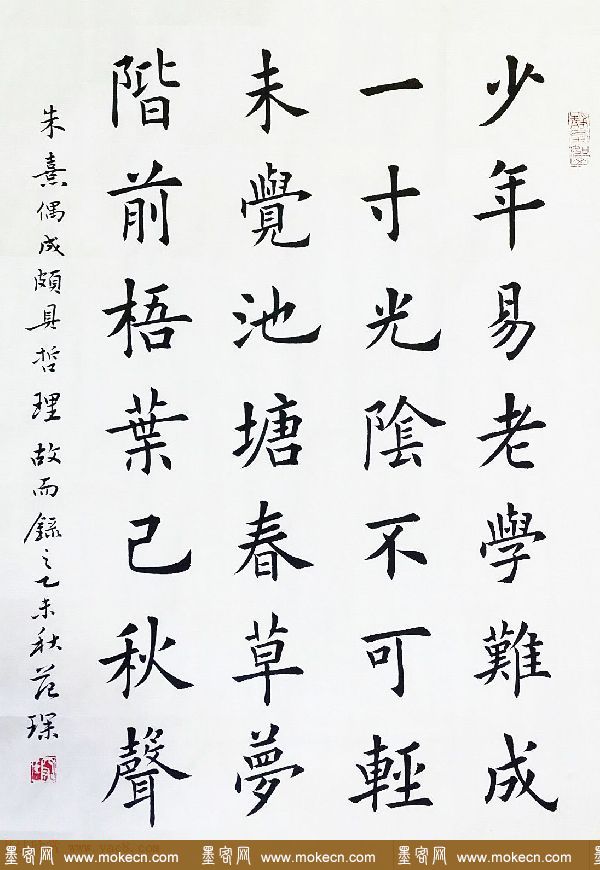 少年易老學難成
一寸光陰不可輕
未覺池塘春草夢
階前梧葉己秋聲
朱熹偶成頗具哲理故而錄之乙未秋范琛
墨客网 www.mokecn.com 墨客网 www.mokecn.com 墨客网 www.mokecn.com 墨客网